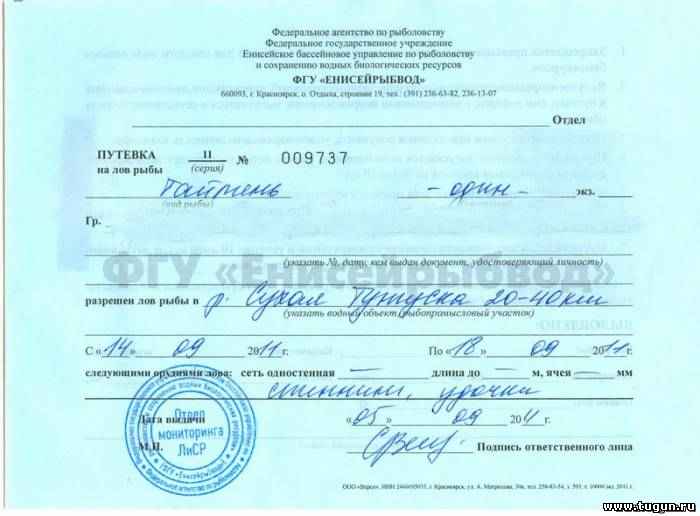 Федеральное агентство по рыболовству
Федеральное государственное учреждение
Енисейское бассейновое управление по рыболовству
и сохранению водных биологических ресурсов
ФГУ «ЕНИСЕЙРЫБВОД»
660093, г. Красноярск, о. Отдыха, строение 19, тел.: (391) 236-63-82, 236-13-07
Отдел
ПУТЕВКА II № 009737
на лов рыбы (серия)
Таймень - один - экз.
(вид рыбы)
Гр.
(указать №, дату, кем выдан документ, удостоверяющий личность)
ФГУ «Енисейрыбвод»
разрешен лов рыбы в р. Сухая Тунгуска 20-40км
(указать водный объект, рыбопромысловый участок)
С «14» 09 2011 г. По «18» 09 2011 г.
следующими орудиями лова: сеть одностенная — длина до — м, ячея — мм
спиннинг, удочки
Дата выдачи «05» 09 2011 г.
М.П. Подпись ответственного лица
Отдел
мониторинга
ЛиСР
www.tugun.ru